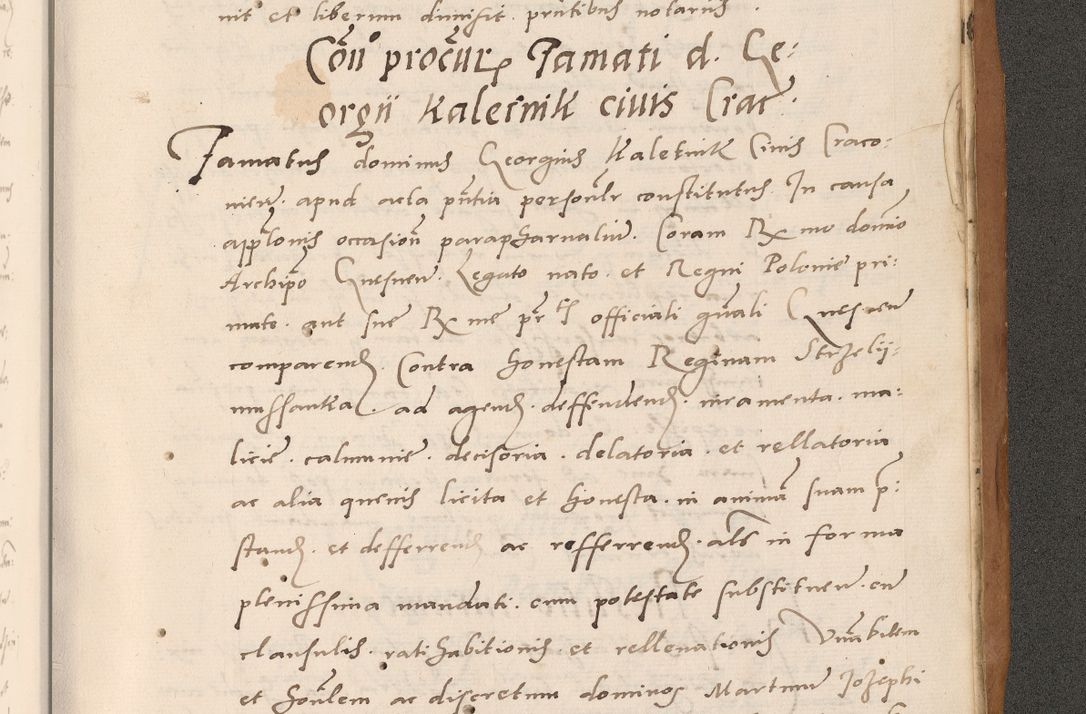 nit et liberum dimisit. pntibus notariis.
Con̄o procūr Famati d. Ge-
orgii Kalethnik civis Crac.
Famatus dominus Georgius Kaletnik Civis Craco-
nien. apud acta pñtia personłr constitutus. In causa
appłonis occasioñ parapharnaliu. Coram Rx mo domīo
Archiepo Gnesnen. Legato nato. et Regni Polonie pri-
mate. aut sue Rx me pr tis officiali gñali Gnesnen
comparend. Contra honestam Reginam Strzelij-
mussanka. ad agend. deffendend. iuramenta. ma-
licie. calumnie. decisoria. delatoria. et rellatoria
ac alia quevis licita et honesta. in animā suam p-
stand. et defferrend ac refferrend. als in forma
plenissima mandati. cum potestate substituen. cū
clausulis. rati habitionis et rellevationis Vnrabilem
et honłem ac discretum dominos Martinu Jozephi